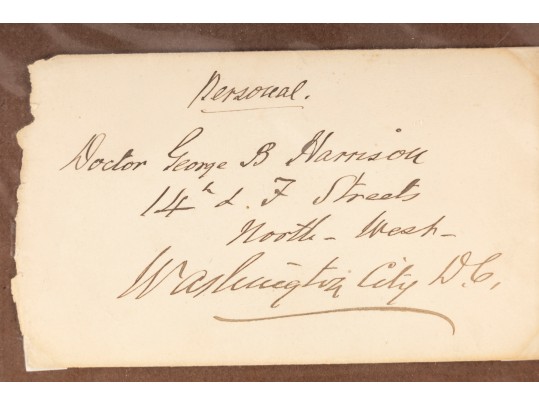 Personal.
Doctor George B Harrison
14th & F Streets
North-West-
Washington City D.C,